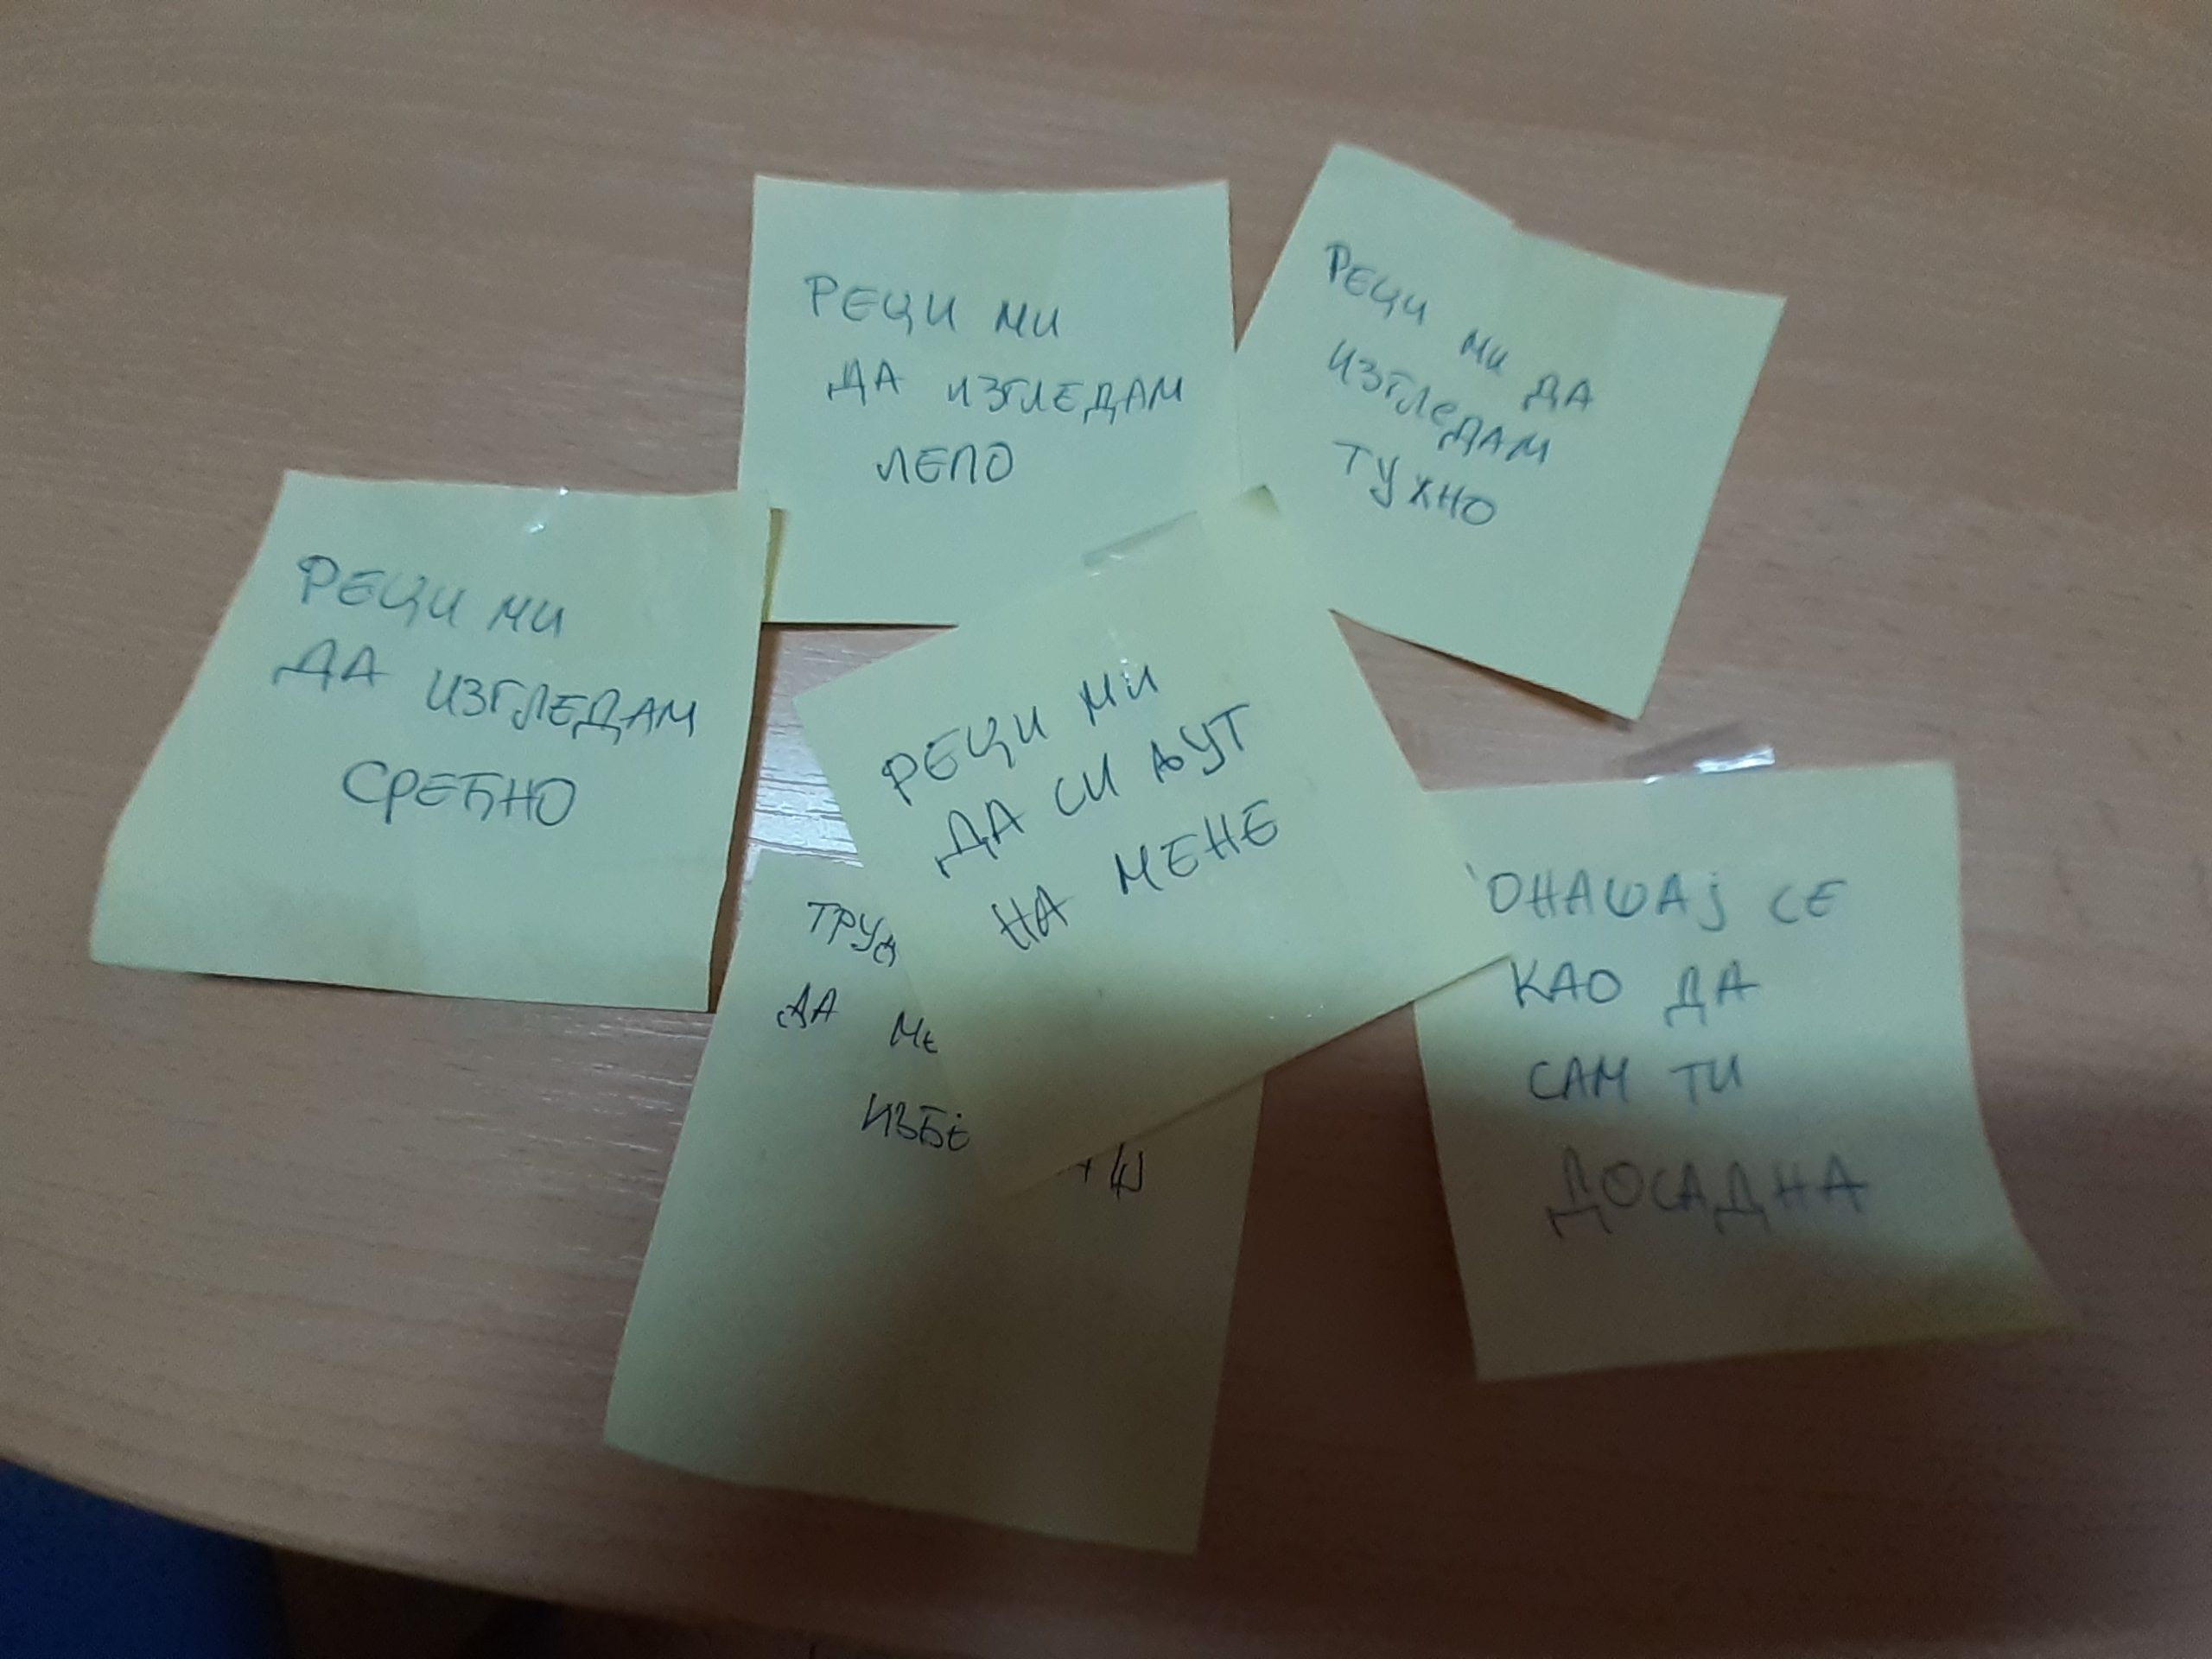 РЕЦИ МИ
ДА ИЗГЛЕДАМ
ЛЕПО
РЕЦИ МИ ДА
ИЗГЛЕДАМ
ТУЖНО
РЕЦИ МИ
ДА ИЗГЛЕДАМ
СРЕЋНО
РЕЦИ МИ
ДА СИ ЉУТ
НА МЕНЕ
ДА
ОНАШАЈ СЕ
КАО ДА
САМ ТИ
ДОСАДНА